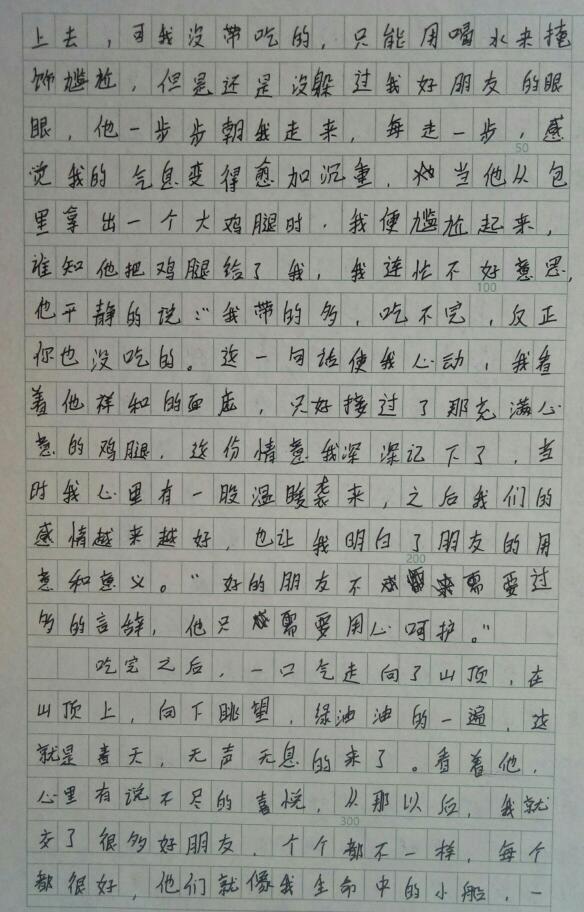 上去，可我没带吃的，只能用喝水来掩
饰尴尬，但是还是没躲过我好朋友的眼
眼，他一步步朝我走来，每走一步，感
50
觉我的气息变得愈加沉重，当他从包
里拿出一个大鸡腿时，我便尴尬起来，
谁知他把鸡腿给了我，我连忙不好意思，
100
他平静的说："我带的多，吃不完，反正
你也没吃的。这一句话使我心动，我看
着他祥和的面庞，只好接过了那充满心
意的鸡腿，这份情意我深深记下了，当
时我心里有一股温暖袭来，之后我们的
感情越来越好，也让我明白了朋友的用
200
意和意义。"好的朋友不需要过
多的言辞，他只需要用心呵护。"
吃完之后，一口气走向了山顶，在
山顶上，向下眺望，绿油油的一遍，这
就是春天，无声无息的来了。看着他，
心里有说不尽的喜悦，从那以后，我就
300
交了很多好朋友，个个都不一样，每个
都很好，他们就像我生命中的小船，一